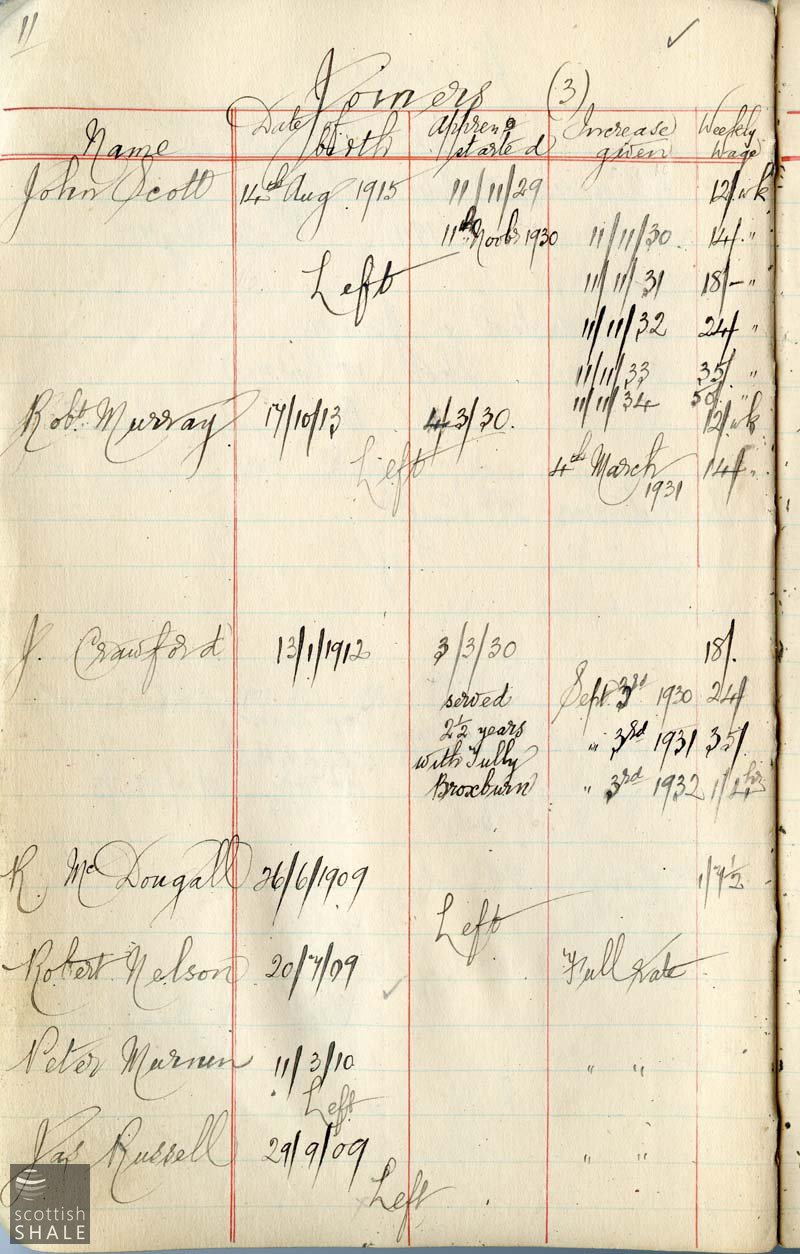 11
Joiners (3)
Name Date of birth Appren started Increase given Weekly Wage
John Scott 14th Aug 1915 11/11/29 12/ wk
11th Novbr 1930 11/11/30 14/ "
Left 11/11/31 18/- "
11/11/32 24/ "
11/11/33 35/ "
11/11/34 50/ "
Robt Murray 17/10/13 4/3/30. 12/ wk
Left 4th March 1931 14/ "
J. Crawford 13/1/1912 3/3/30 18/.
served Sept. 3rd 1930 24/
2½ years " 3rd 1931 35/
with Tully
Broxburn " 3rd 1932 1/4 hr
R McDougall 26/6/1909 1/7½
Left
Robert Nelson 20/7/09 Full Rate
Peter Murnin 11/3/10 " "
Left
Jas Russell 29/9/09 " "
Left
scottish
SHALE